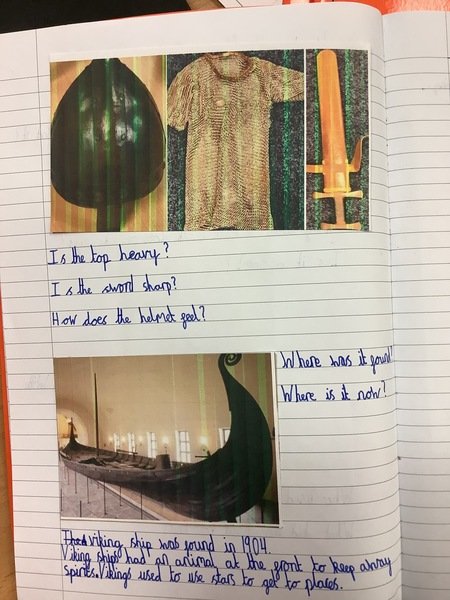 Is the top heavy?
Is the sword sharp?
How does the helmet feel?
Where was it found?
Where is it now?
viking ship was found in 1904.
Viking ships had an animal at the front to keep away
spirits. Vikings used to use stars to get to places.